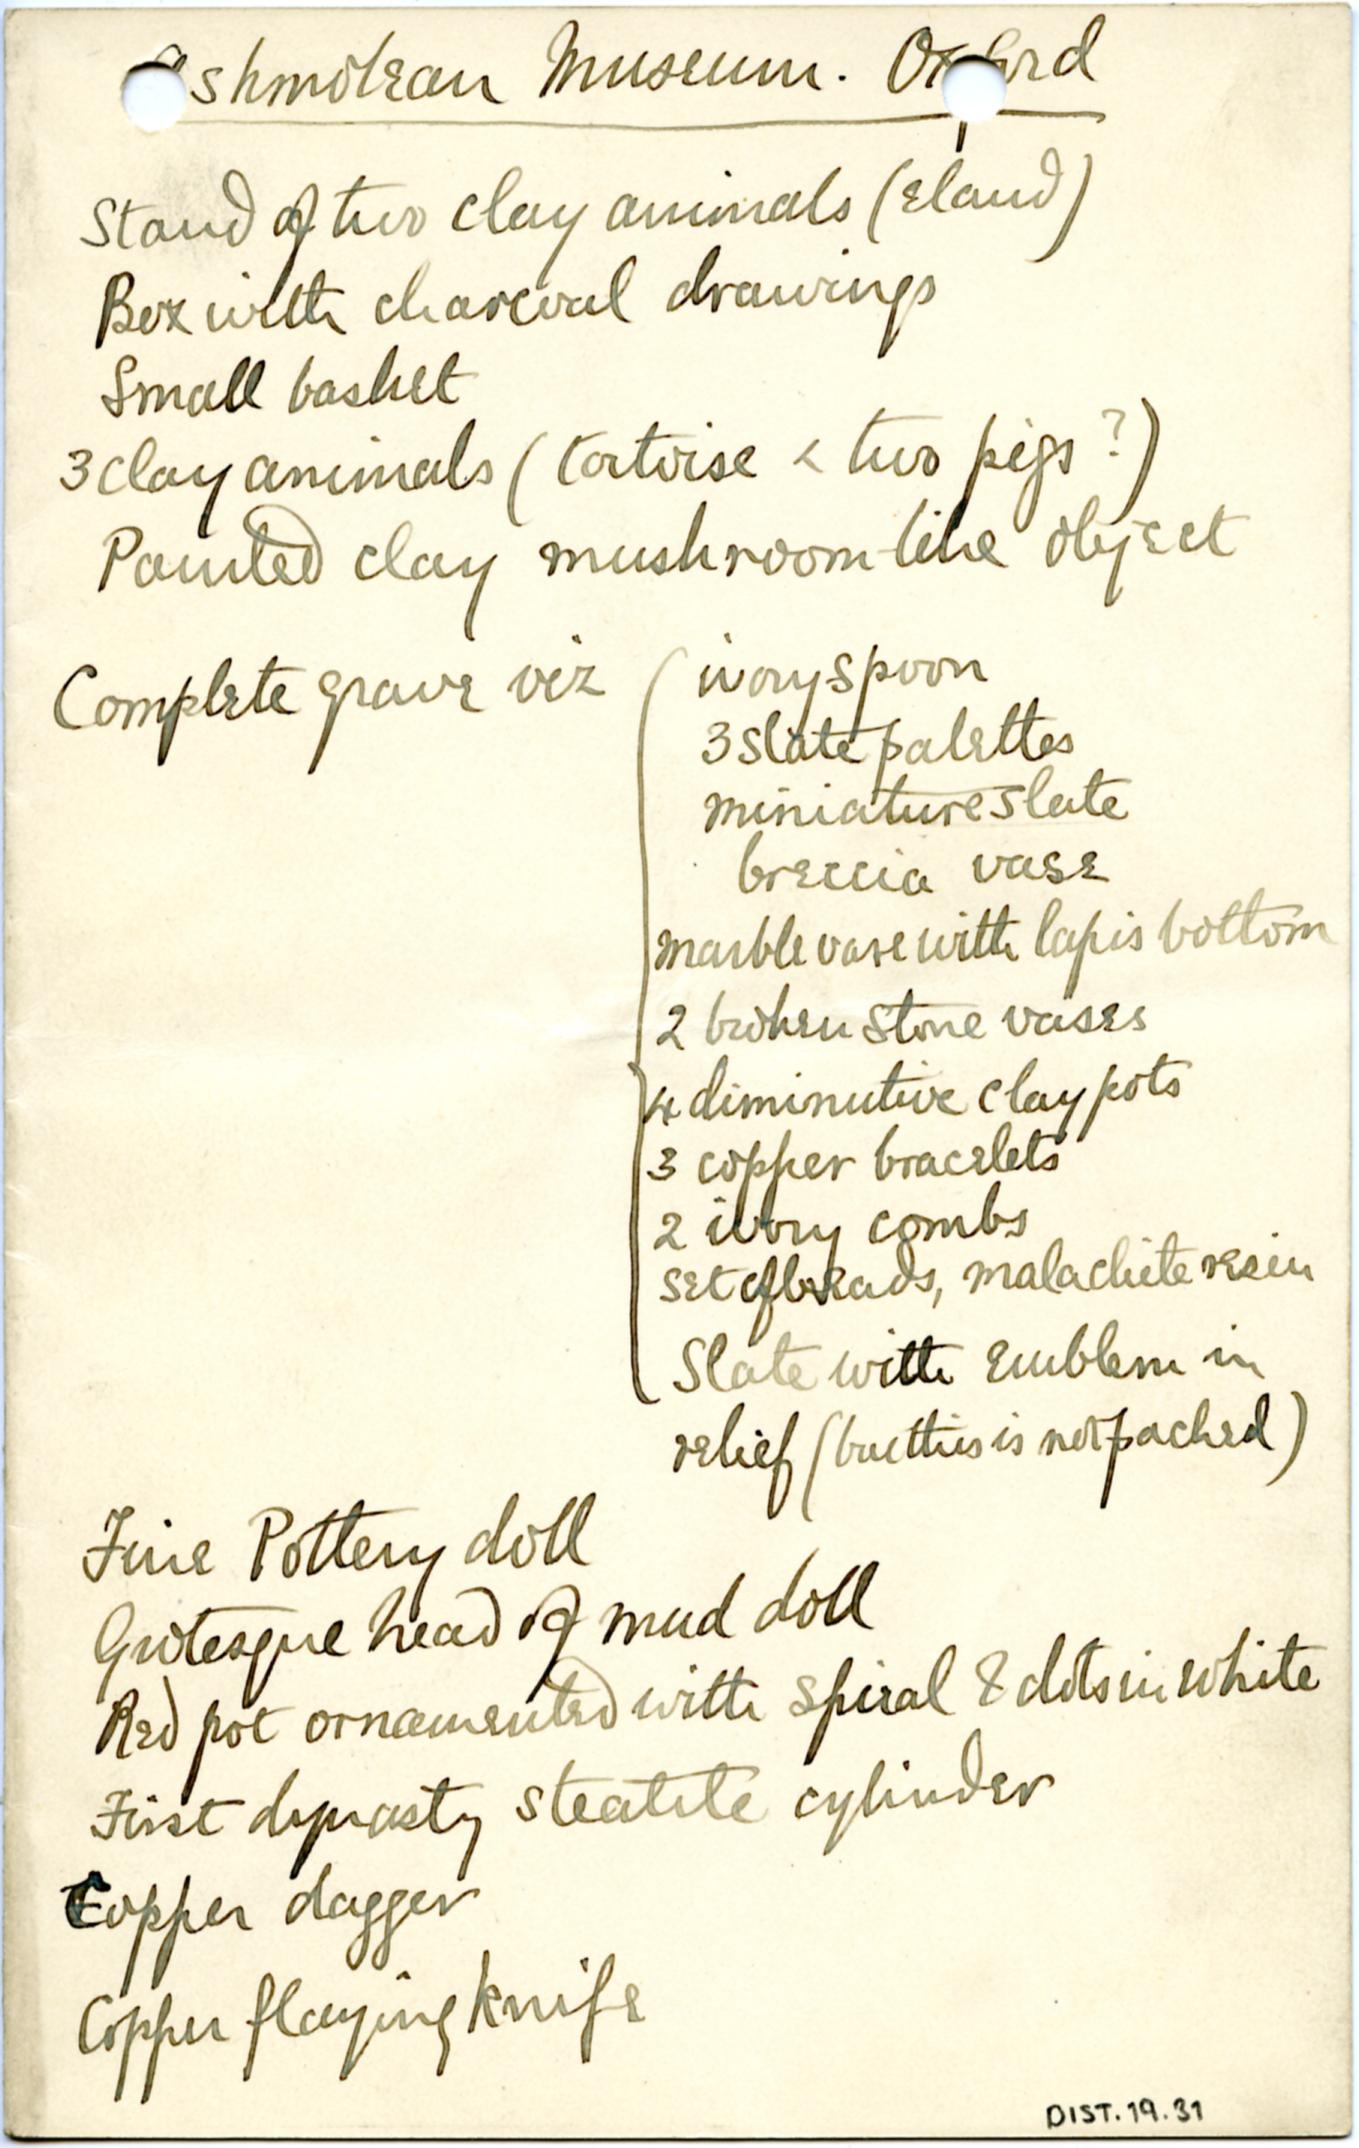 Ashmolean Museum. Oxford
Stand of two clay animals (Eland)
Box with charcoal drawings
Small basket
3 clay animals (tortoise & two pigs?)
Painted clay mushroom-like object
Complete grave viz
ivory spoon
3 slate palettes
miniature slate
breccia vase
marble vase with lapis bottom
2 broken stone vases
4 diminutive clay pots
3 copper bracelets
2 ivory combs
set of beads, malachite resin
Slate with emblem in
relief (but this is not packed)
Fine Pottery doll
Grotesque head of mud doll
Red pot ornamented with spiral & dots in white
First dynasty steatite cylinder
Copper dagger
Copper flaying knife
DIST.19.31